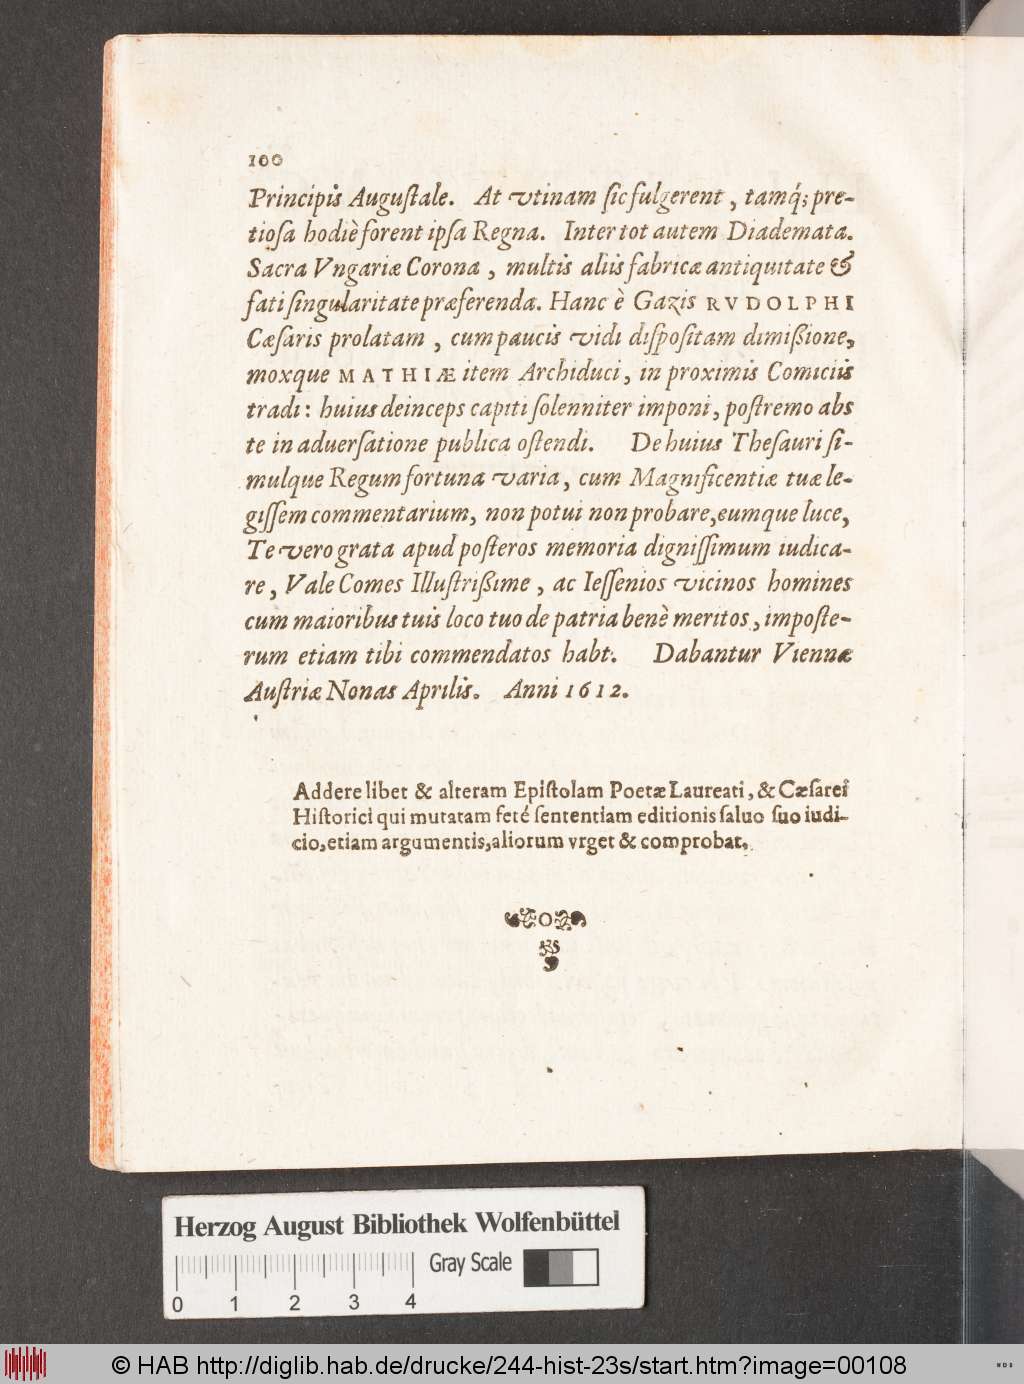 100
Principis Auguſtale. At vtinam ſic fulgerent, tamq́; pre-
tioſa hodiè forent ipſa Regna. Inter tot autem Diademata.
Sacra Vngariæ Corona, multis aliis fabricæ antiquitate &
fati ſingularitate præferenda. Hanc è Gazis RVDOLPHI
Cæſaris prolatam, cum paucis vidi diſpoſitam dimißione,
moxque MATHIÆ item Archiduci, in proximis Comiciis
tradi: huius deinceps capiti ſolenniter imponi, poſtremo abs
te in aduerſatione publica oſtendi. De huius Theſauri ſi-
mulque Regum fortuna varia, cum Magnificentiæ tuæ le-
giſſem commentarium, non potui non probare, eumque luce,
Te vero grata apud poſteros memoria digniſſimum iudica-
re, Vale Comes Illuſtrißime, ac Ieſſenios vicinos homines
cum maioribus tuis loco tuo de patria benè meritos, impoſte-
rum etiam tibi commendatos habt. Dabantur Viennæ
Auſtriæ Nonas Aprilis. Anni 1612.
Addere libet & alteram Epiſtolam Poetæ Laureati, & Cæſarei
Hiſtorici qui mutatam feté ſententiam editionis ſaluo ſuo iudi-
cio, etiam argumentis, aliorum vrget & comprobat.
Herzog August Bibliothek Wolfenbüttel
Gray Scale
0 1 2 3 4
© HAB http://diglib.hab.de/drucke/244-hist-23s/start.htm?image=00108